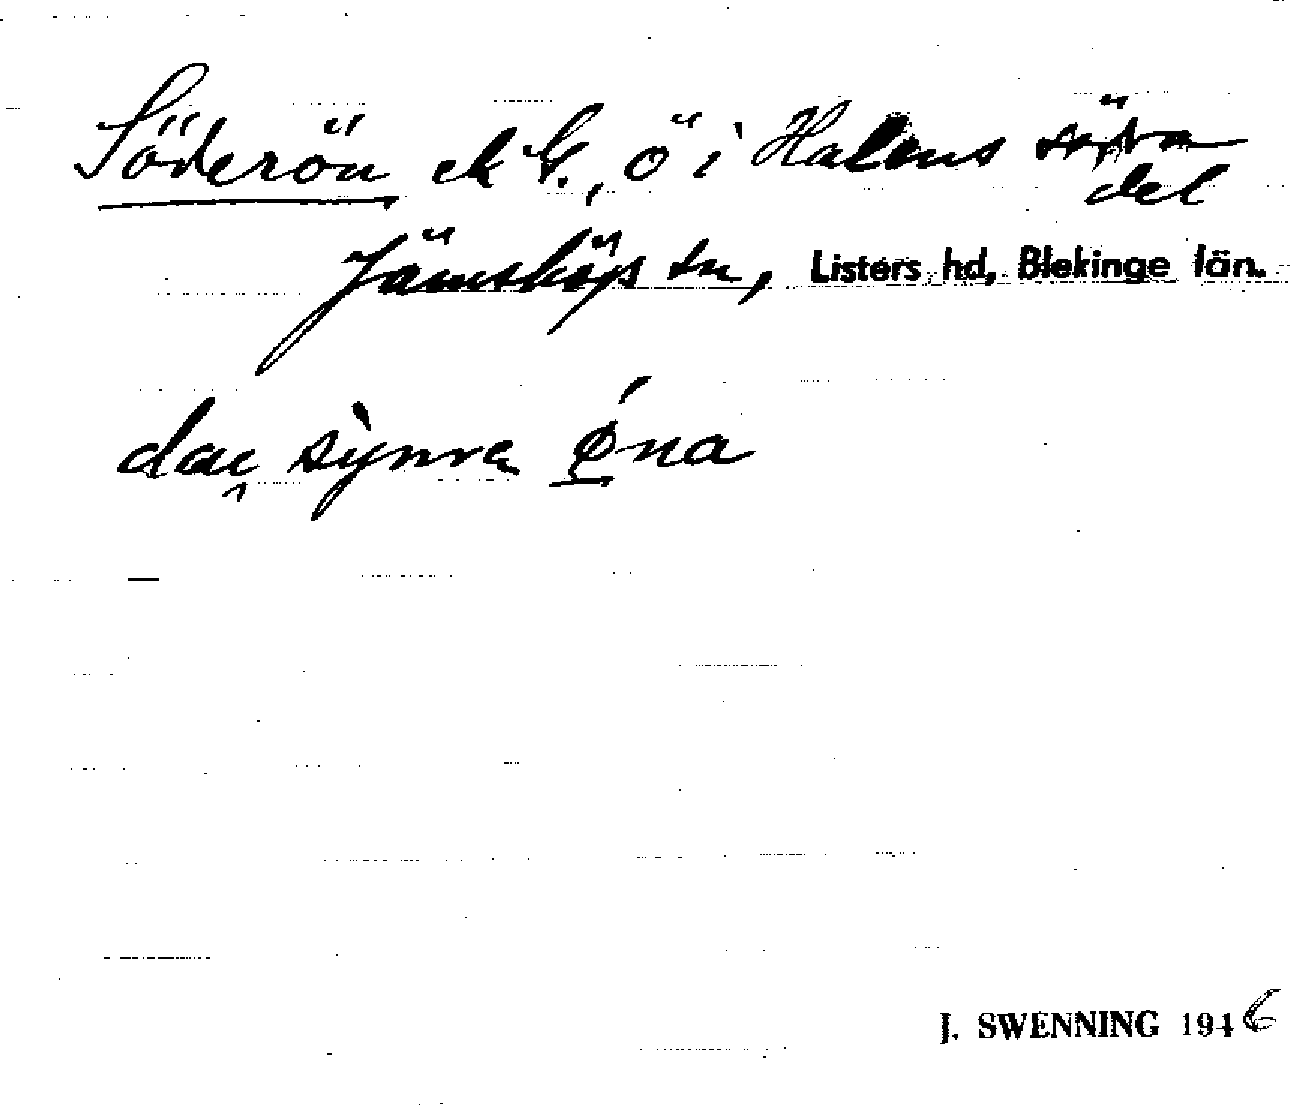 Söderön ek bl., ö i Halens södra
del
Jämshögs sn, Listers hd, Blekinge län.
dae synra øna
J. SWENNING 1946